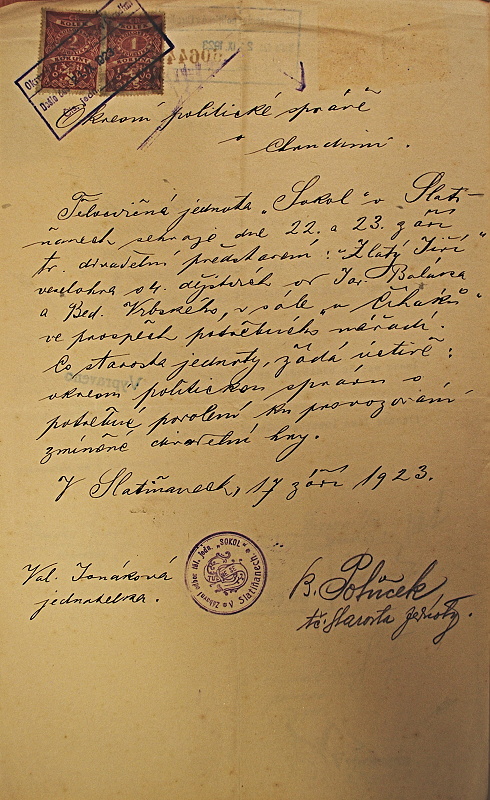 KOLEK
KOLEK
2
1
KORUNY
KORUNA
1923
50644
Okresní politické správě
v
Chrudimi.
Tělocvičná jednota „Sokol" v Slati-
ňanech sehraje dne 22. a 23. září
tr. divadelní představení: „Zlatý Jiří"
veselohra o 4. dějstvích od Jar. Baláka
a Bed. Vrbského, v sále „u Čiháků"
ve prospěch potřebného nářadí.
Co starosta jednoty, žádá uctivě:
okresní politickou správu o
potřebné povolení ku provozování
zmíněné divadelní hry.
V Slatiňanech, 17 září 1923.
Vypraveno
Val. Jonáková
jednatelka.
Zábavní odbor těl. jedn. „SOKOL"
v Slatiňanech.
B. Polůček
tč. starosta jednoty.